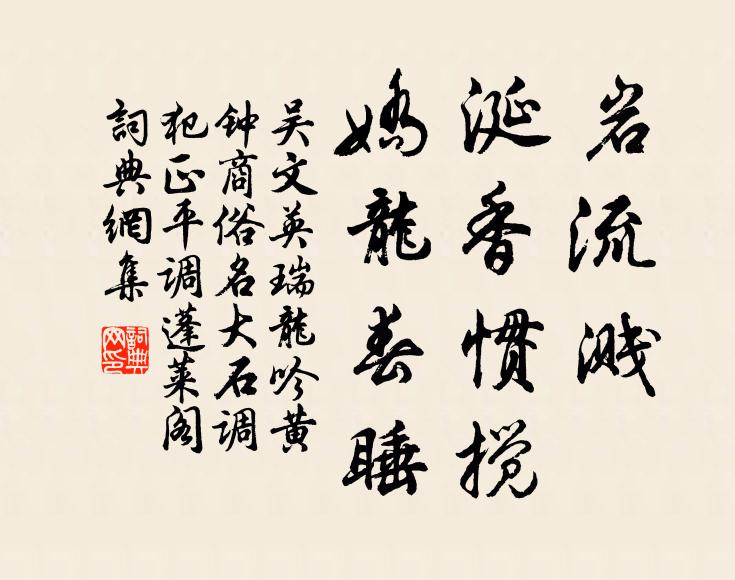 岩流溅
涎香惯搅
娇龙春睡
吴文英瑞龙吟黄
钟商俗名大石调
犯正平调蓬莱阁
詞典網集
詞典網印